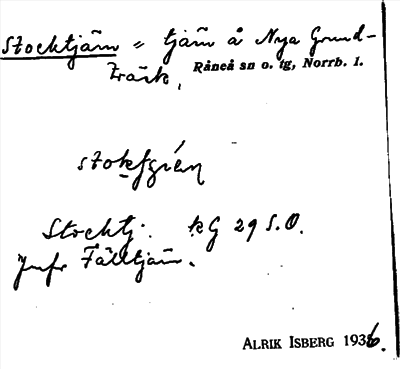 Stocktjärn = tjärn å Nya Grund-
träsk,
Råneå sn o. tg, Norrb. l.
Stocktj. kG 29 S.O.
Jmfr Fälltjärn.
ALRIK ISBERG 1936.